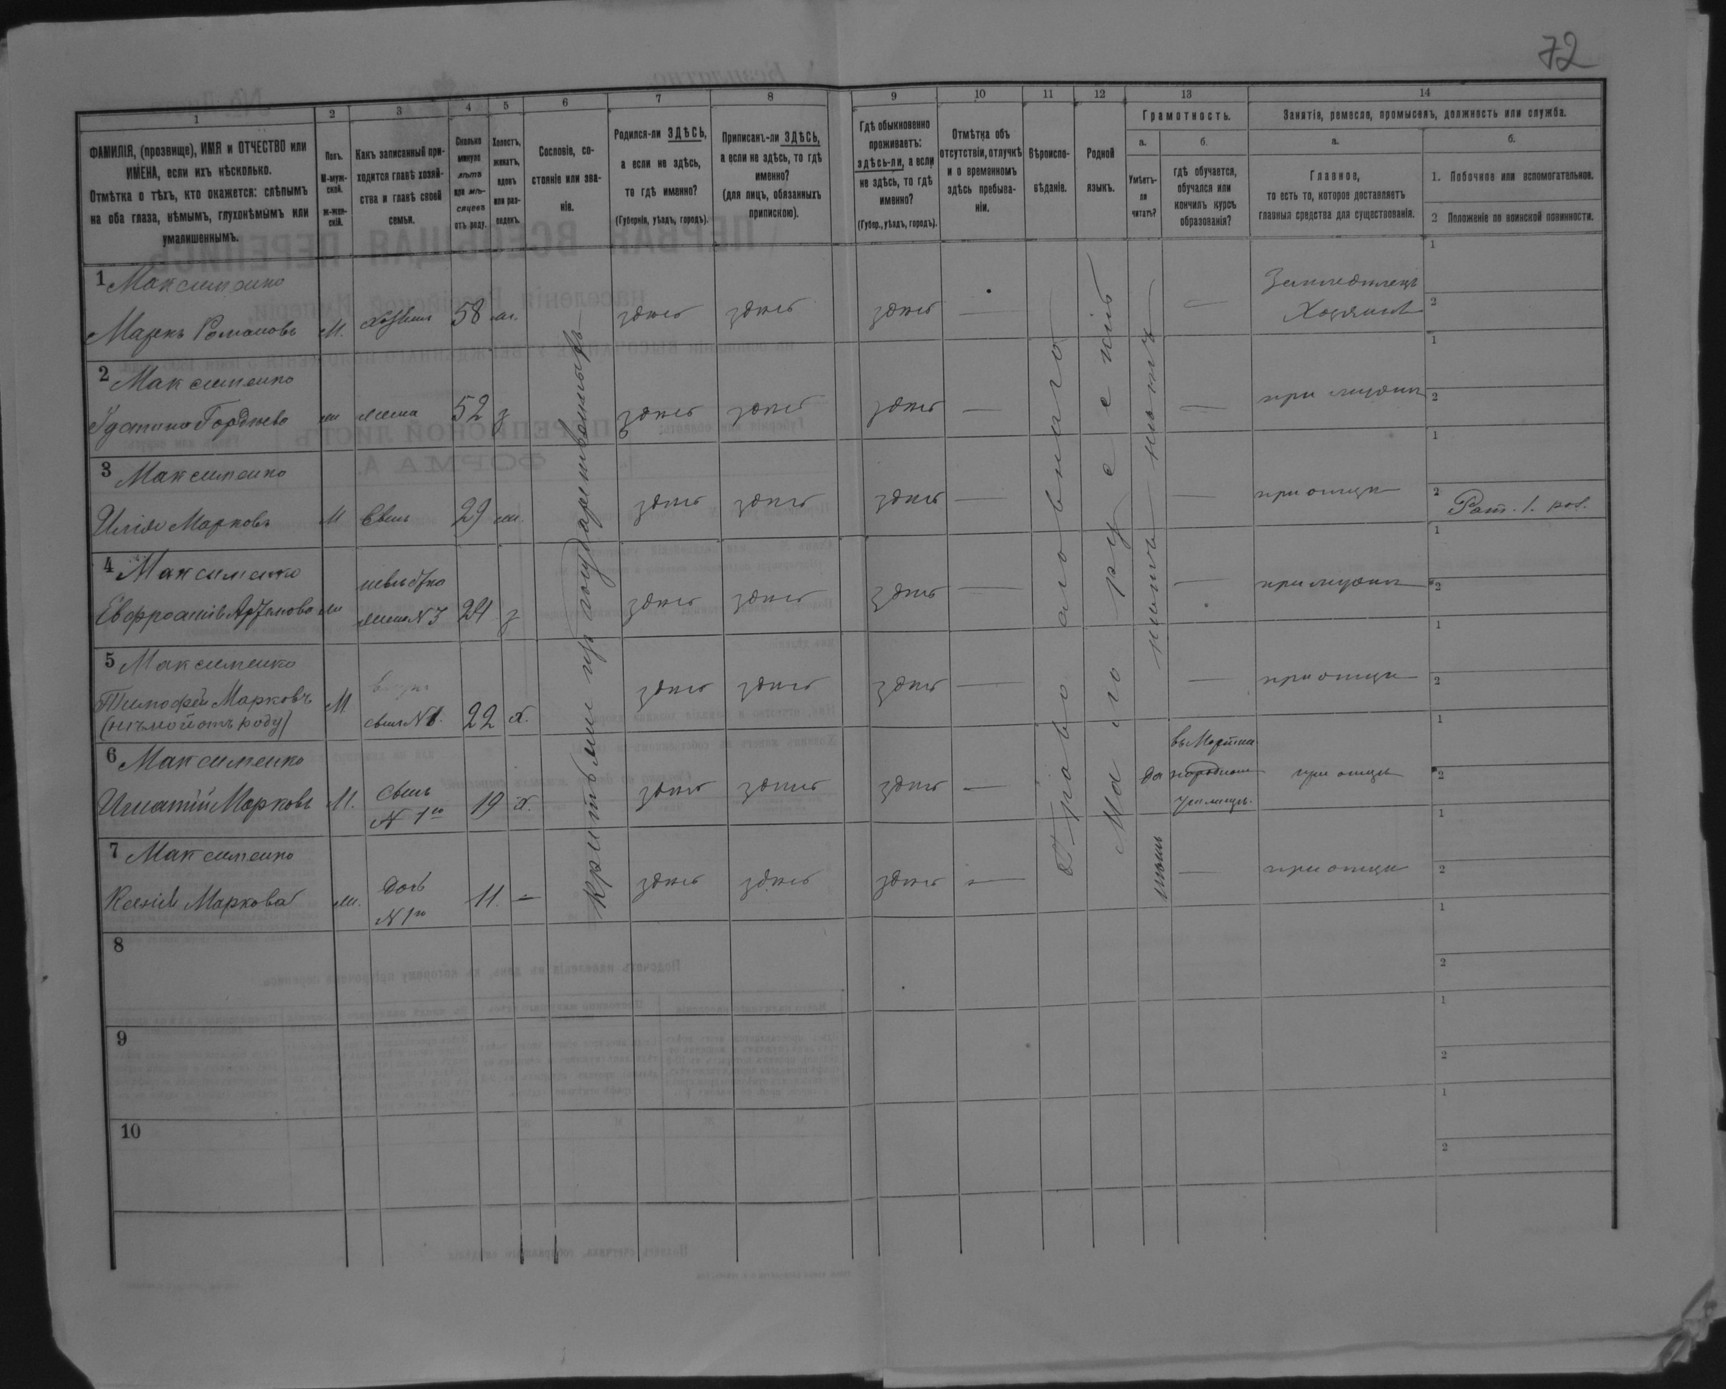 72
1 2 3 4 5 6 7 8 9 10 11 12 13 14
ФАМИЛІЯ, (прозвище), ИМЯ и ОТЧЕСТВО или
ИМЕНА, если ихъ нѣсколько.
Отмѣтка о тѣхъ, кто окажется: слѣпымъ
на оба глаза, нѣмымъ, глухонѣмымъ или
умалишеннымъ.
Полъ.
М-муж-
ской.
ж-жен-
скій.
Какъ записанный при-
ходится главѣ хозяй-
ства и главѣ своей
семьи.
Сколько
минуло
лѣтъ
или мѣ-
сяцевъ
отъ роду.
Холостъ,
женатъ,
вдовъ
или раз-
веденъ.
Сословіе, со-
стояніе или зва-
ніе.
Родился-ли ЗДѢСЬ,
а если не здѣсь,
то гдѣ именно?
(Губернія, уѣздъ, городъ).
Приписанъ-ли ЗДѢСЬ,
а если не здѣсь, то гдѣ
именно?
(для лицъ, обязанныхъ
припискою).
Гдѣ обыкновенно
проживаетъ:
здѣсь-ли, а если
не здѣсь, то гдѣ
именно?
(Губер., уѣздъ, городъ).
Отмѣтка объ
отсутствіи, отлучкѣ
и о временномъ
здѣсь пребыва-
ніи.
Вѣроиспо-
вѣданіе.
Родной
языкъ.
Грамотность.
а.
Умѣетъ-
ли
читать?
б.
гдѣ обучается,
обучался или
кончилъ курсъ
образованія?
Занятія, ремесло, промыселъ, должность или служба.
а.
Главное,
то есть то, которое доставляетъ
главныя средства для существованія.
б.
1. Побочное или вспомогательное.
2 Положеніе по воинской повинности.
1 Максименко
Маркъ Романовъ М. Хозяинъ 58 здѣсь здѣсь здѣсь — — Земледѣлецъ
Хозяинъ
2 Максименко
Устина Гордѣева ж жена 52 з здѣсь здѣсь здѣсь — — при мужѣ
3 Максименко
Илія Марковъ М Сынъ 29 здѣсь здѣсь здѣсь — при отцѣ Рат. 1. раз.
4 Максименко
невѣстка
жена N 3 24 з здѣсь здѣсь здѣсь — — при мужѣ
5 Максименко
Тимофей Марковъ М
(нѣмой отъ роду) сынъ N 1. 22 х. здѣсь здѣсь здѣсь — — при отцѣ
6 Максименко
Игнатій Марковъ М. Сынъ
N 1го 19 х. здѣсь здѣсь здѣсь — да
народном
училищѣ. при отцѣ
7 Максименко
Ксенія Маркова ж. Дочь
N 1го 11. — здѣсь здѣсь здѣсь — нѣтъ — при отцѣ
Православнаго
Малорусскій
нѣтъ нѣтъ
8
9
10